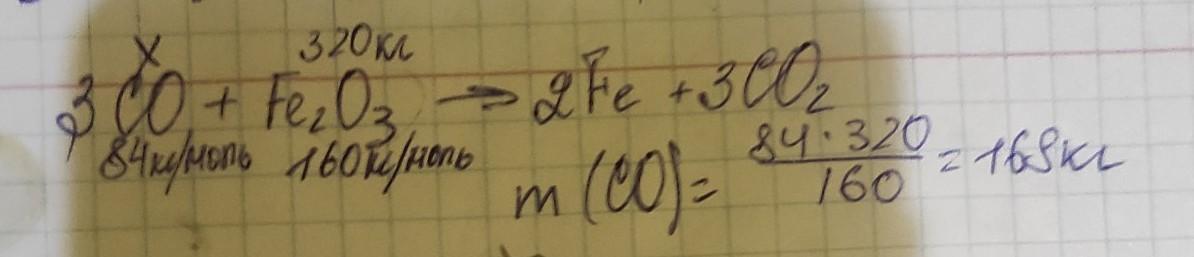 x 320кг
3CO + Fe₂O₃ → 2Fe + 3CO₂
84кг/моль 160кг/моль
m (CO) = 84 · 320 / 160 = 168кг